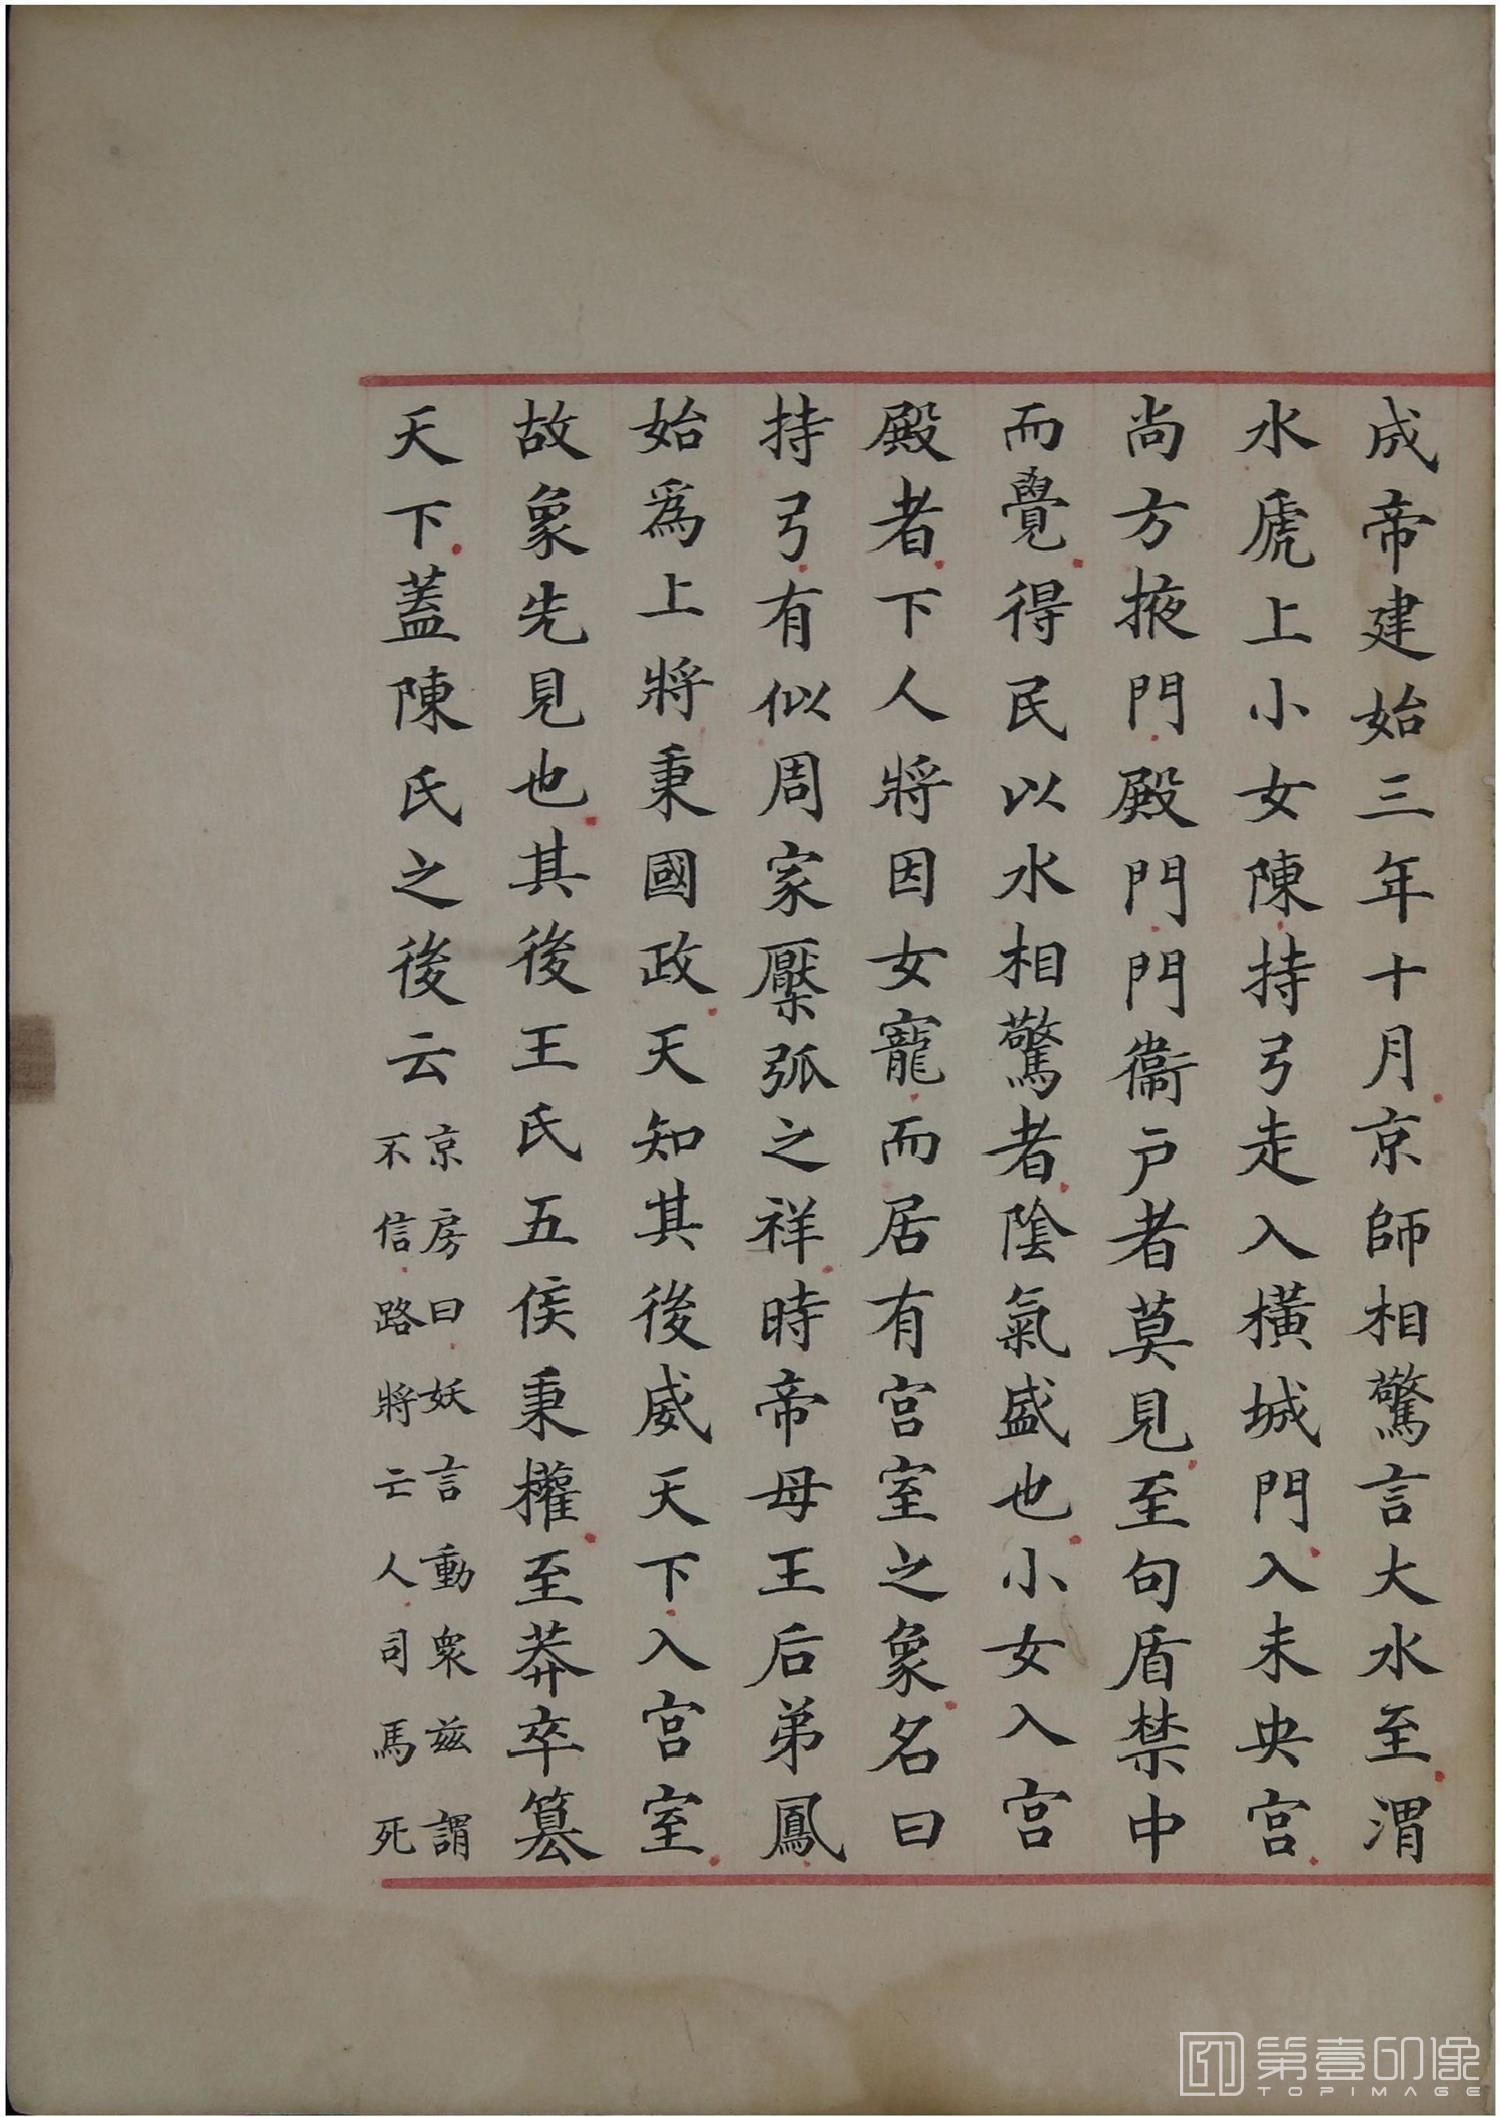 成帝建始三年十月京師相驚言大水至渭
水虒上小女陳持弓走入橫城門入未央宫
尚方掖門殿門門衞戸者莫見至句盾禁中
而覺得民以水相驚者陰氣盛也小女入宫
殿者下人將因女寵而居有宫室之象名曰
持弓有似周家檿弧之祥時帝母王后弟鳳
始爲上將秉國政天知其後威天下入宫室
故象先見也其後王氏五侯秉權至莽卒篡
天下蓋陳氏之後云
京房曰妖言動衆茲謂
不信路將亡人司馬死
第壹印像
TOPIMAGE